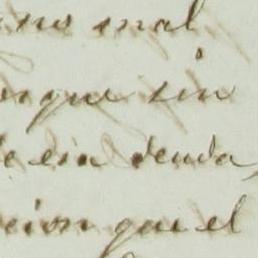 mal
que sin
e sin deuda,
cion que el